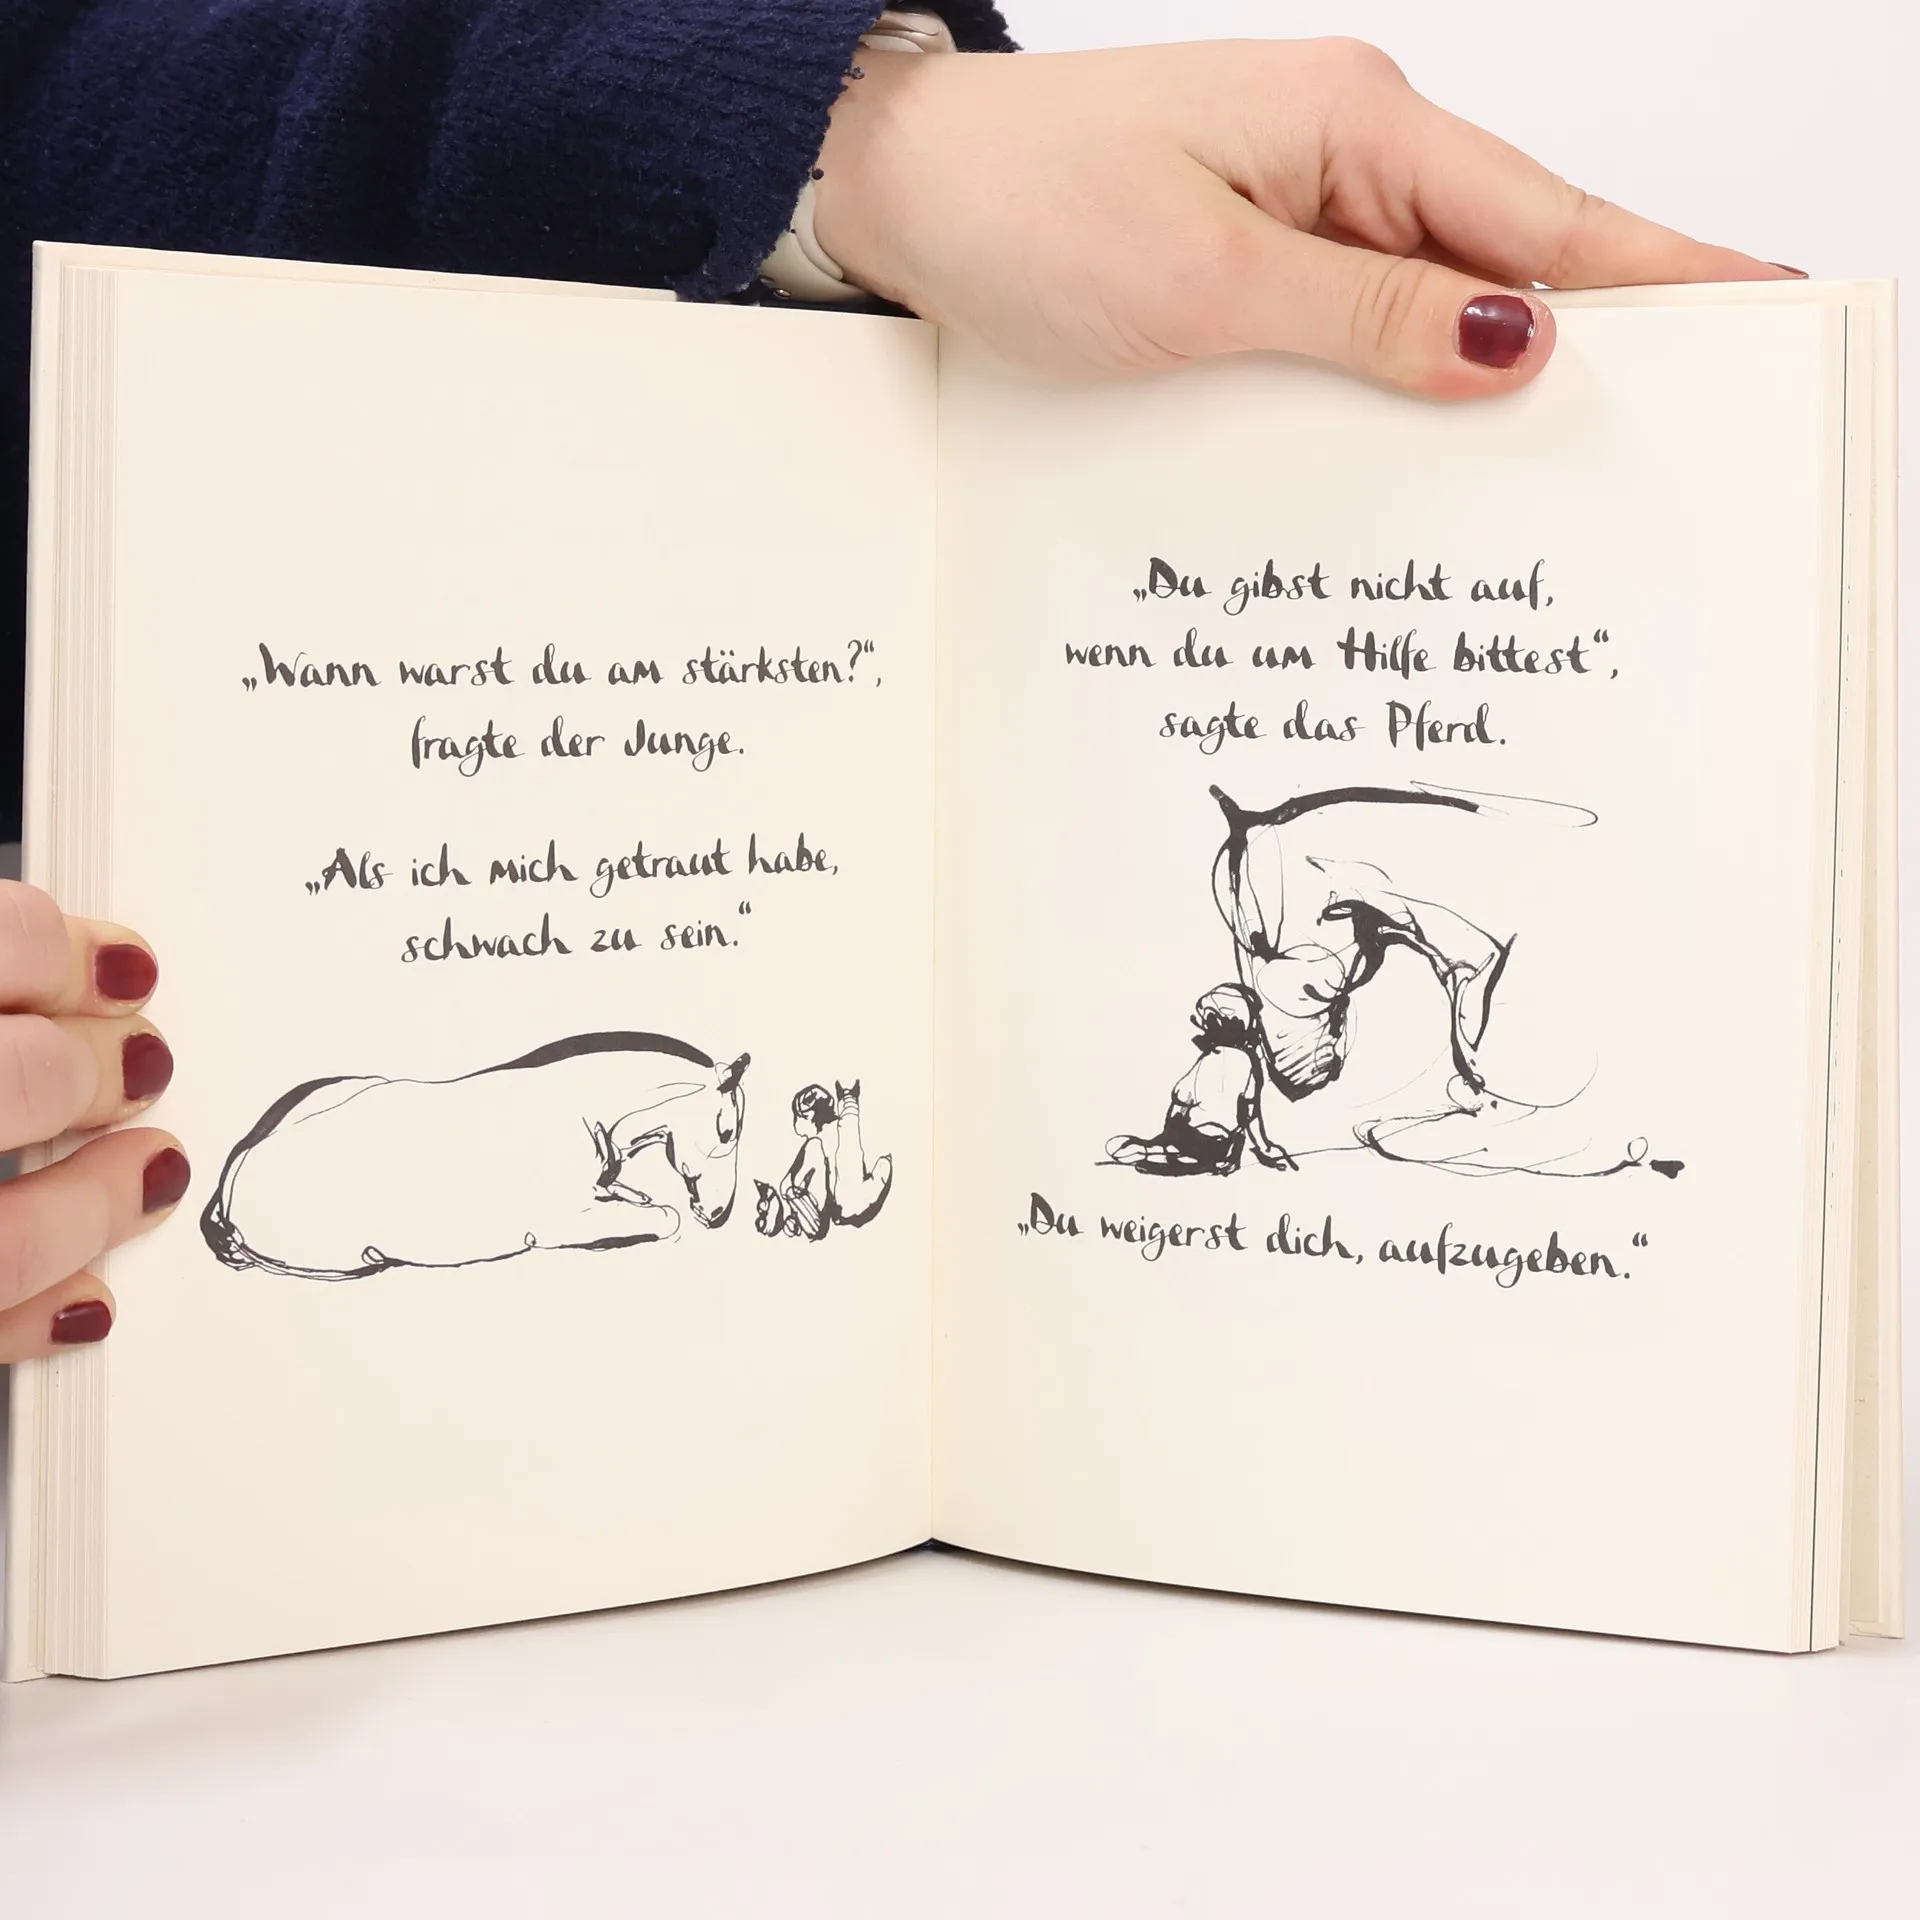 „Wann warst du am stärksten?“,
fragte der Junge.
„Als ich mich getraut habe,
schwach zu sein.“
„Du gibst nicht auf,
wenn du um Hilfe bittest“,
sagte das Pferd.
„Du weigerst dich, aufzugeben.“